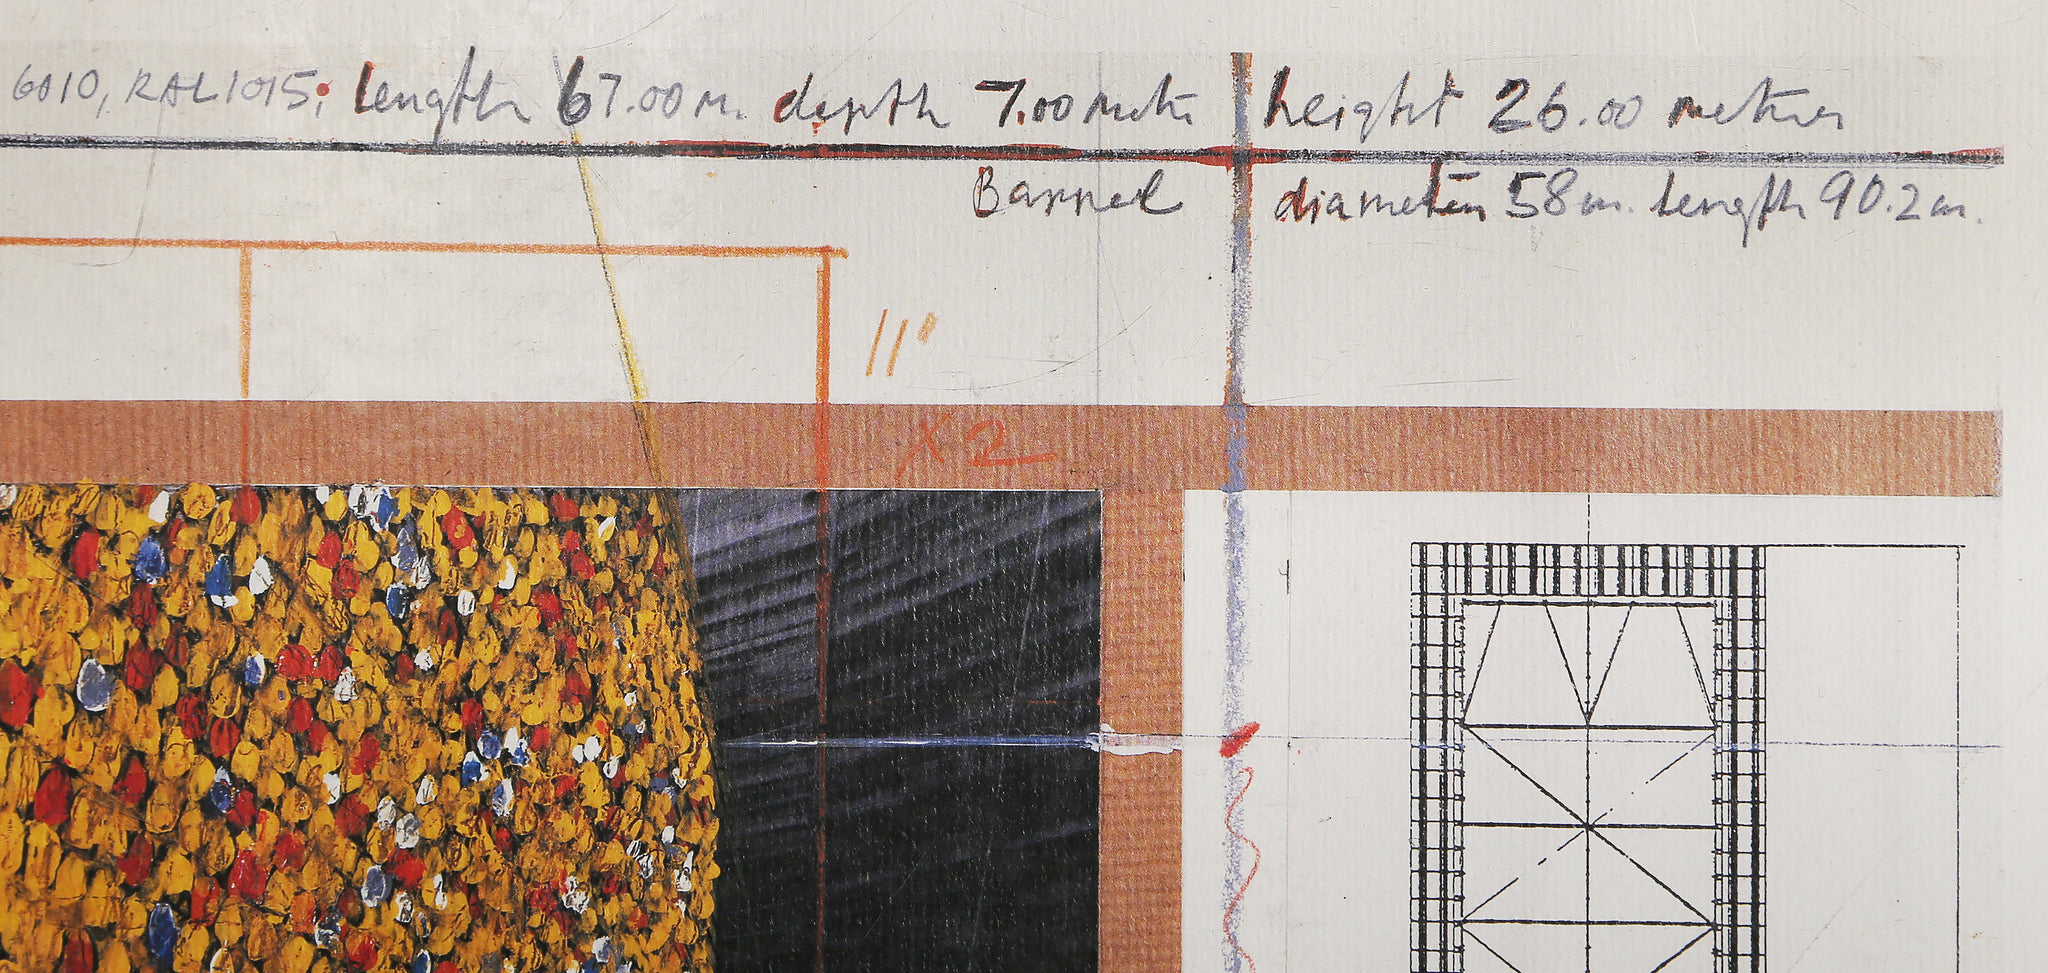 6010, RAL1015; length 67.00 m. depth 7.00 metr height 26.00 metres
Barrel diameter 58 m. length 90.2 m.
11"
X2